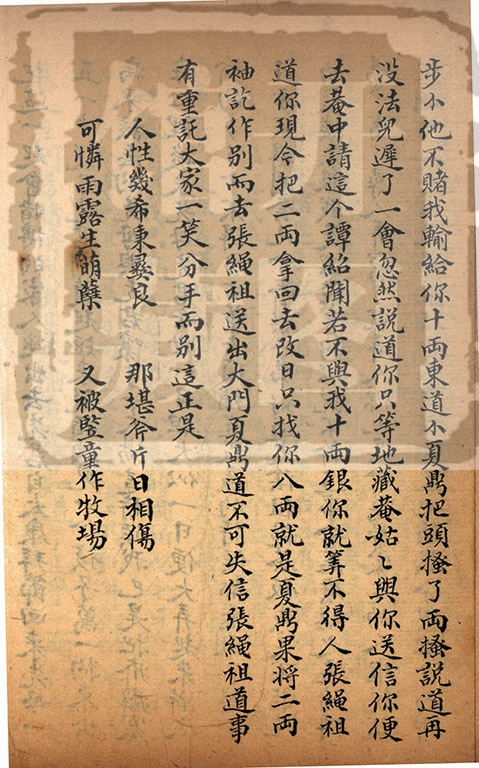 步小他不賭我輸給你十両東道小夏鼎把頭搔了両搔說道再
没法兒遲了一會忽然說道你只等地藏菴姑〻與你送信你便
去菴中請這个譚紹聞若不與我十両銀你就筭不得人張繩祖
道你現今把二両拿回去改日只找你八両就是夏鼎果将二両
袖訖作别而去張繩祖送出大門夏鼎道不可失信張繩祖道事
有重託大家一笑分手而別這正是
人性幾希秉彝良 那堪斧斤日相傷
可憐雨露生萌蘖 又被監童作牧場